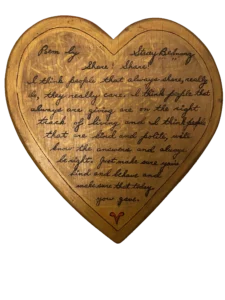 Poem by Stacy
Share! Share!
I think people that always share, really
do, they really care. I think people that
always are giving are on the right
track of living and I think people
that are kind and polite, will
have the answers and always
be right. Just make sure you're
kind and behave and
make sure that today,
you gave.